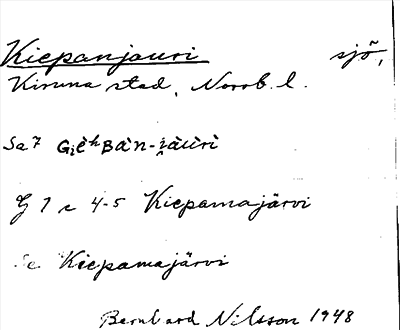 Kiepanjauri sjö,
Kiruna stad, Norrb. l.
Sa 7
G 1 c 4-5 Kiepamajärvi
Se Kiepamajärvi
Bernhard Nilsson 1948